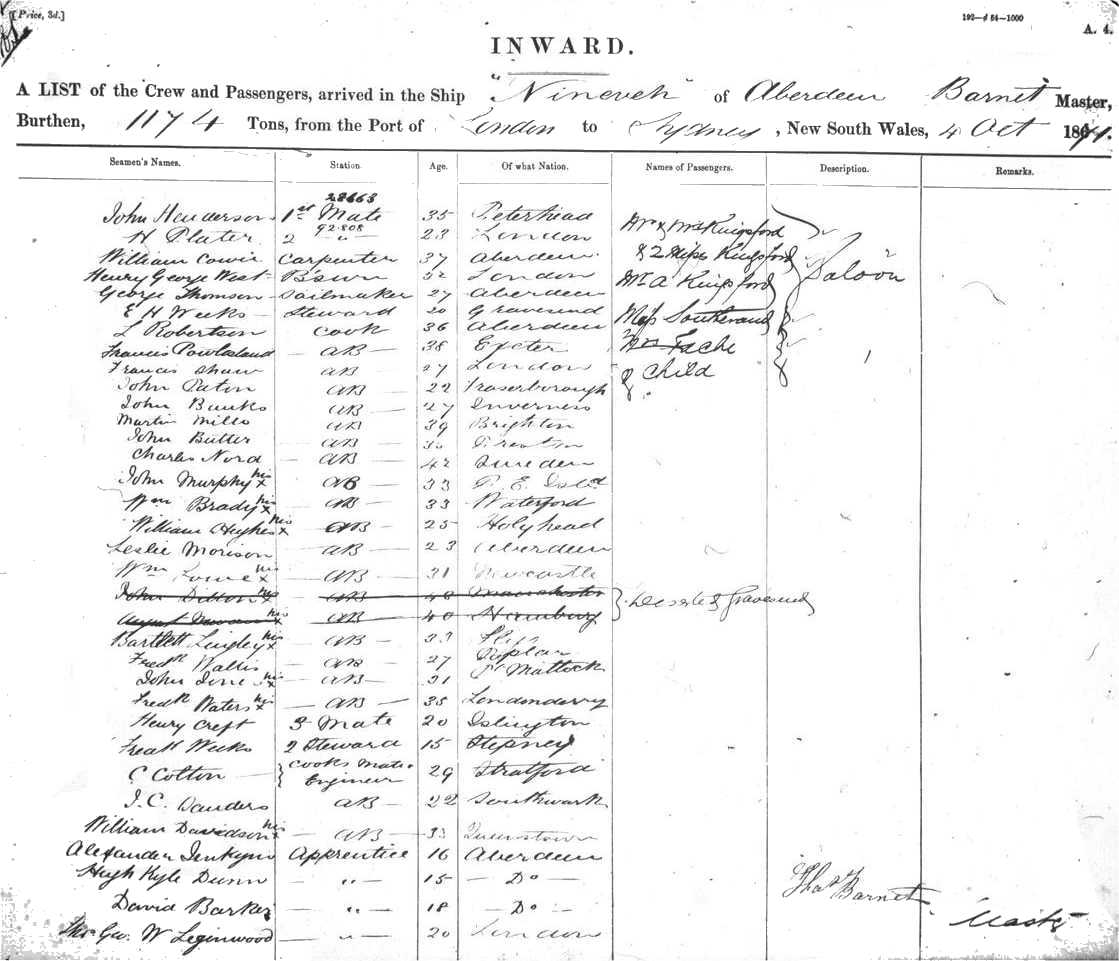 [Price, 3d.]
192—4 84—1000
A. 4.
INWARD.
A LIST of the Crew and Passengers, arrived in the Ship "Nineveh" of Aberdeen Barnet Master,
Burthen, 1174 Tons, from the Port of London to Sydney, New South Wales, 4 Oct 1871.
Seamen's Names. Station. Age. Of what Nation. Names of Passengers. Description. Remarks.
28663
John Henderson 1st Mate 35 Peterhead Mr & Mrs Kingsford
92808
H Plater 2 " 23 London & 2 Miss Kingsford
William Cowie Carpenter 37 Aberdeen Saloon
Henry George West B'swn 52 London Mr A Kingsford
George Thomson Sailmaker 27 Aberdeen
E H Weeks Steward 20 Gravesend Miss
L Robertson Cook 36 Aberdeen
Francis AB 38 Exeter
Francis Shaw AB 27 London & Child
John Paton AB 22 Fraserborough
John Banks AB 27 Inverness
Martin Mills AB 39 Brighton
John Butter AB
Charles Nord AB 42 Sweden
John Murphy his x AB 33 P. E. Isld
Wm Brady his x AB 33 Waterford
William Hughes his x AB 25 Holyhead
Leslie Morison AB 23 Aberdeen
Wm Lowe his x AB 31 Newcastle
John Dillon his x AB 40 Manchester Deserted Gravesend
August his x AB 40 Hamburg
Bartlett Lingley his x AB 33
Fredk Wallis AB 27 Poplar
John his x AB 31 Mattock
Fredk Waters his x AB 35 Londonderry
Henry Creft 3 Mate 20 Islington
Fredk Weeks 2 Steward 15 Stepney
C Colton Cooks Mate 29 Stratford
Engineer
J. C. Sanders AB 22 Southwark
William Davidson his x AB 33 Queenstown
Alexander Jenkyns Apprentice 16 Aberdeen
Hugh Kyle Dunn " 15 Do
Thos Barnet
David Barker " 18 Do
Master
Thos Geo. W Legenwood " 20 London